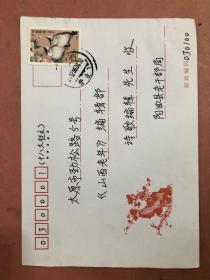 030001 (十八大征文)
太原市劲松路5号
《山西老年》编辑部
诗歌编辑 先生 收
阳曲县老干部局
邮政编码 030100